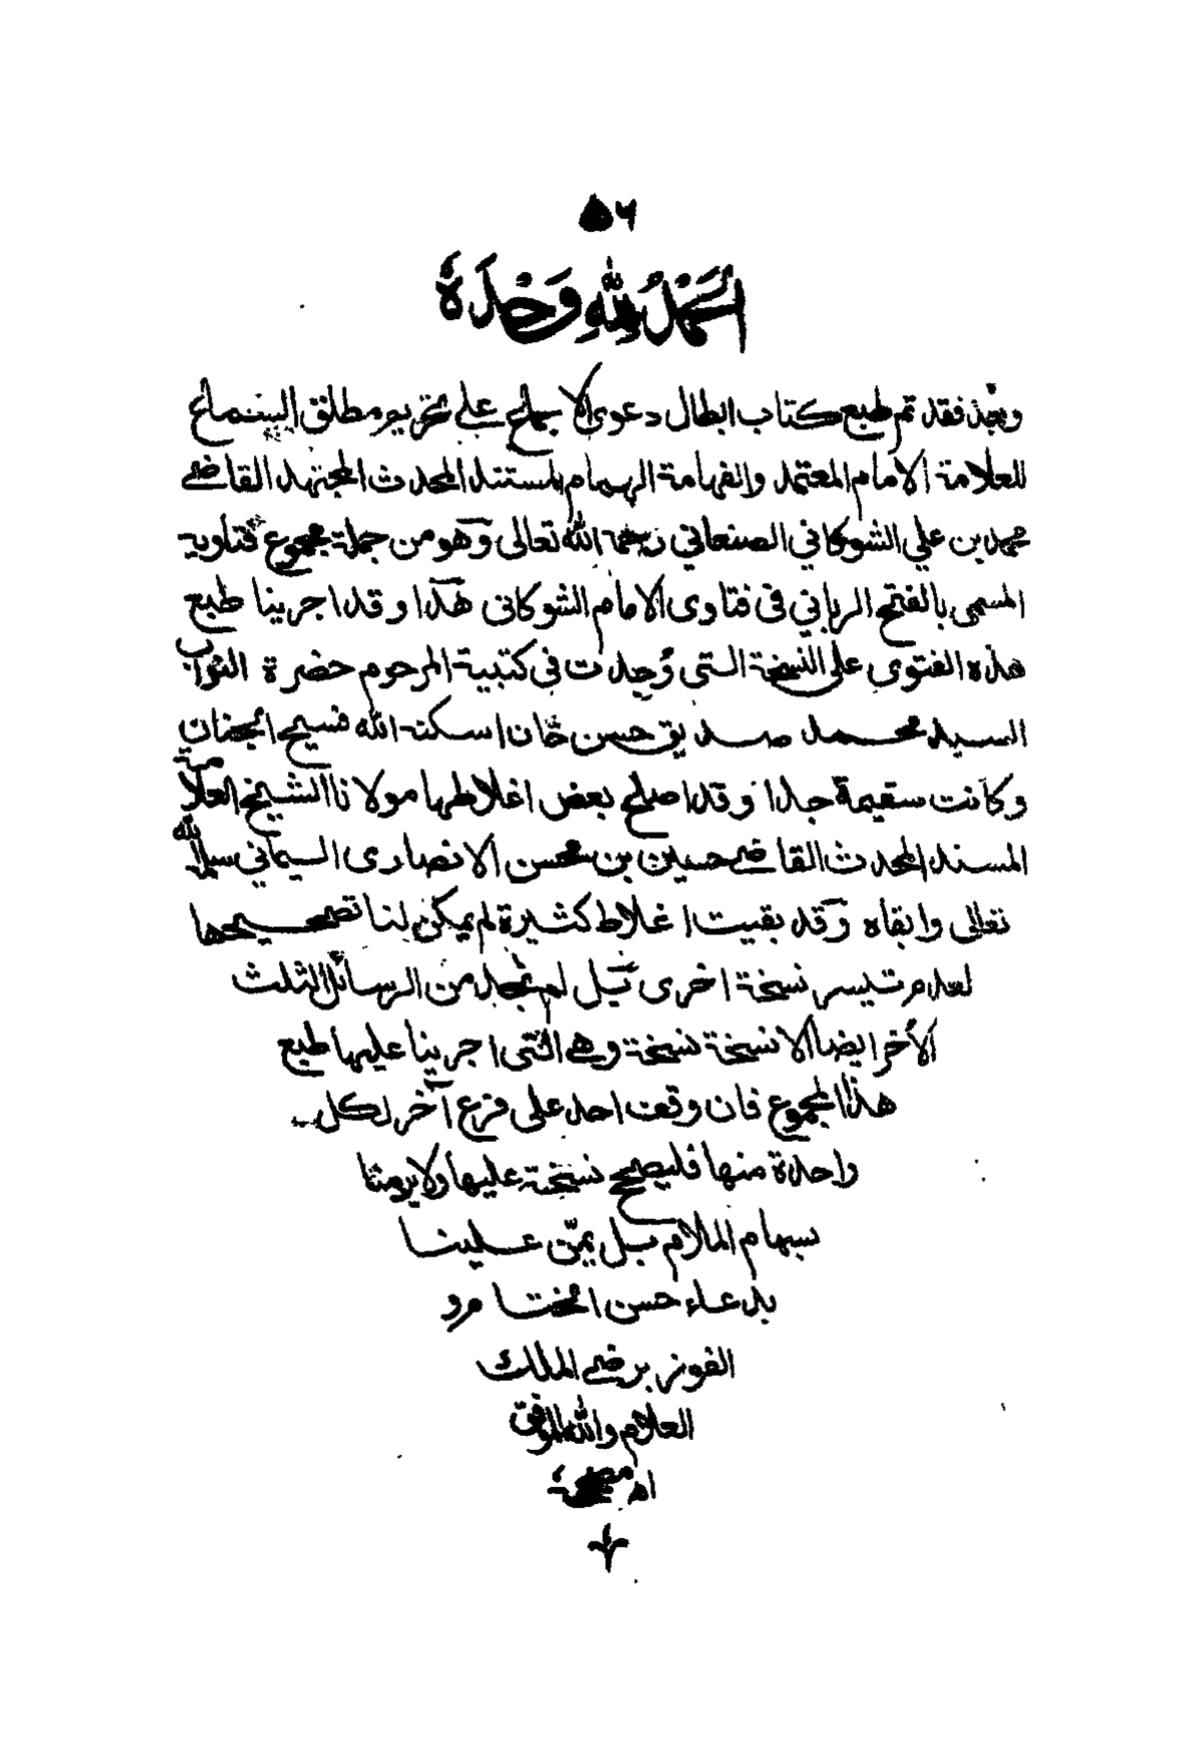 ٥٦
اَلْحَمْدُ لِلّٰهِ وَحْدَهٗ
وبعد فقد تم طبع كتاب ابطال دعوى الاجماع على تحريم مطلق السماع
للعلامة الامام المعتمد والفهامة الهمام المستند المحدث المجتهد القاضى
محمد بن علي الشوكاني الصنعاني رحمه الله تعالى وهو من جملة مجموع فتاويه
المسمى بالفتح الرباني فى فتاوى الامام الشوكانى هذا وقد اجرينا طبع
هذه الفتوى على النسخة التى وُجدت فى كتبية المرحوم حضرة النواب
السيد محمد صديق حسن خان اسكنه الله فسيح الجنان
وكانت سقيمة جدا وقد اصلح بعض اغلاطها مولانا الشيخ العلامة
المسند المحدث القاضى حسين بن محسن الانصارى اليماني سلمه الله
تعالى وابقاه وقد بقيت اغلاط كثيرة لم يمكن لنا تصحيحها
لعدم تيسر نسخة اخرى بل لم نجد من الرسائل الثلث
الأخر ايضا الا نسخة نسخة وهى التى اجرينا عليها طبع
هذا المجموع فان وقف احد على فرع آخر لكل
واحدة منها فليصحح نسخته عليها ولا يرمنا
بسهام الملام بل يمنّ علينا
بدعاء حسن الختام و
الفوز برضى الملك
العلام والله الموفق
اهـ